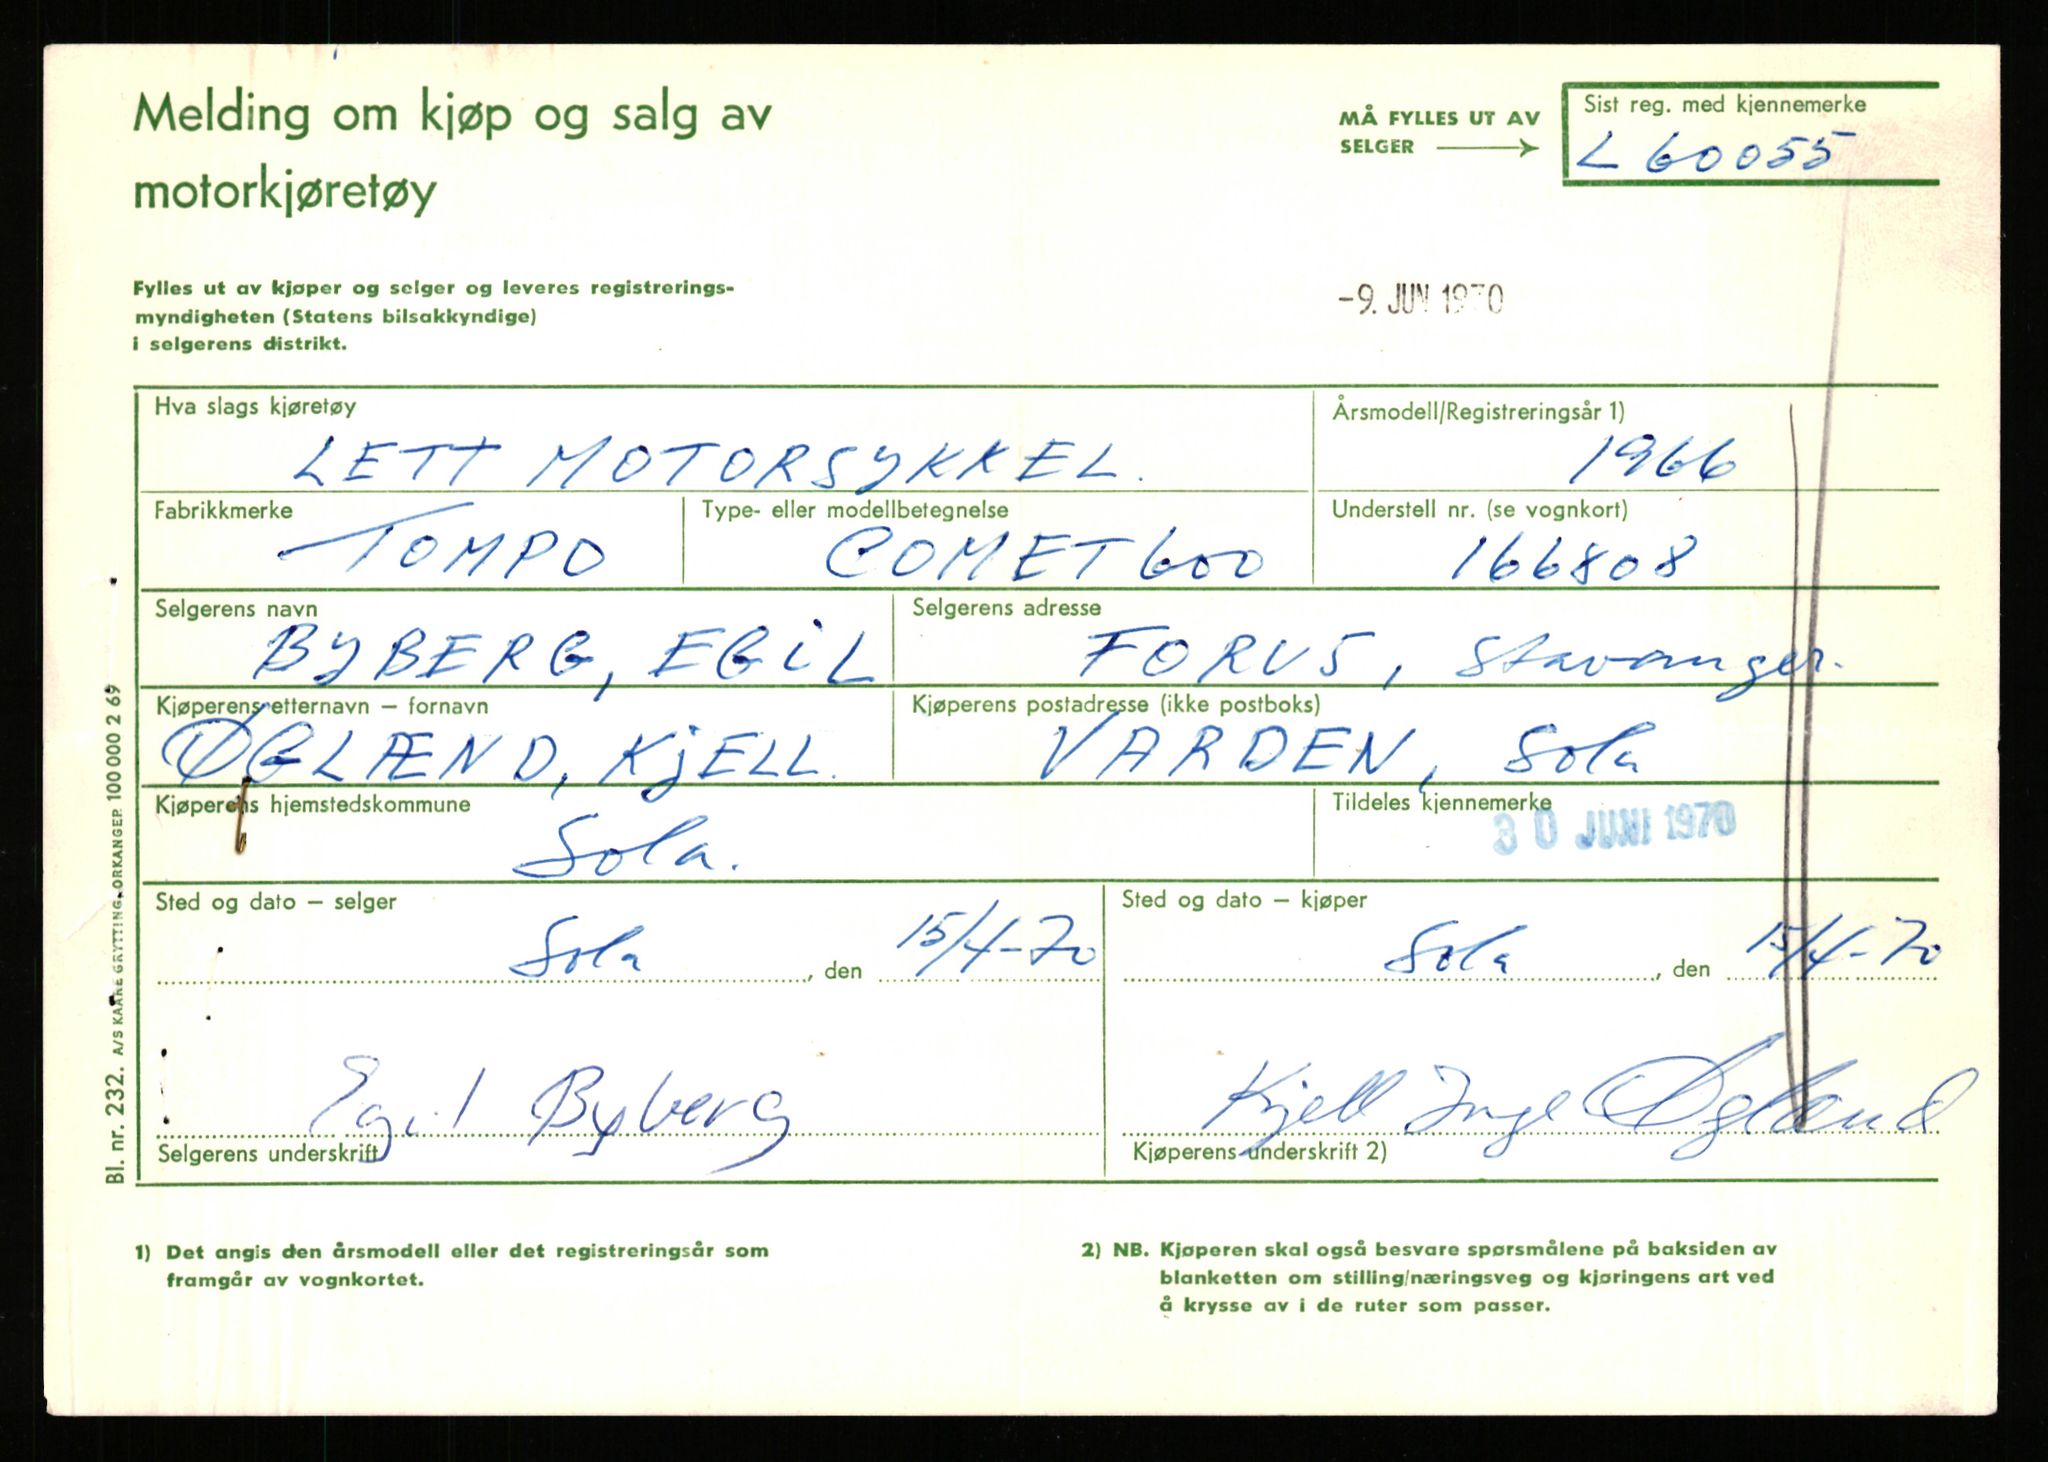 Melding om kjøp og salg av
motorkjøretøy
MÅ FYLLES UT AV
SELGER
Sist reg. med kjennemerke
L 60055
Fylles ut av kjøper og selger og leveres registrerings-
myndigheten (Statens bilsakkyndige)
i selgerens distrikt.
-9. JUN 1970
Hva slags kjøretøy
LETT MOTORSYKKEL.
Årsmodell/Registreringsår 1)
1966
Fabrikkmerke
TOMPO
Type- eller modellbetegnelse
COMET 600
Understell nr. (se vognkort)
166808
Selgerens navn
BYBERG, EGiL
Selgerens adresse
FORUS, Stavanger.
Kjøperens etternavn – fornavn
ØGLÆND, KjELL.
Kjøperens postadresse (ikke postboks)
VARDEN, Sola
Kjøperens hjemstedskommune
Sola.
Tildeles kjennemerke
30 JUNI 1970
Sted og dato – selger
Sola, den 15/4-70
Sted og dato – kjøper
Sola, den 15/4-70
Egil Byberg
Selgerens underskrift
Kjell Inge Øglænd
Kjøperens underskrift 2)
Bl. nr. 232. A/S KAARE GRYTTING. ORKANGER. 100 000 2 69
1) Det angis den årsmodell eller det registreringsår som
framgår av vognkortet.
2) NB. Kjøperen skal også besvare spørsmålene på baksiden av
blanketten om stilling/næringsveg og kjøringens art ved
å krysse av i de ruter som passer.